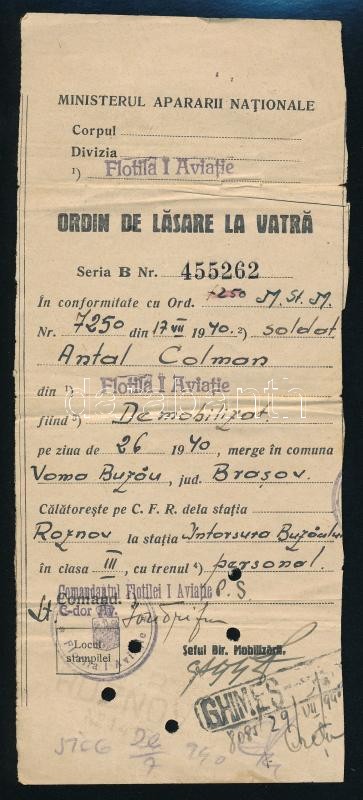 MINISTERUL APARARII NAȚIONALE
Corpul
Divizia
¹) Flotila I Aviație
ORDIN DE LĂSARE LA VATRĂ
Seria B Nr. 455262
În conformitate cu Ord. 7250 M. St. M.
Nr. 7250 din 17 VII 1940. ²) soldat
Antal Colman
din ¹) Flotila I Aviație
fiind ³) Demobilizat
pe ziua de 26 1940, merge în comuna
Voma Buzău, jud. Brașov.
Călătorește pe C. F. R. dela stația
Roznov la stația Intorsura Buzăului
în clasa III, cu trenul ⁴) personal.
Comandantul Flotilei I Aviație P. S
Comand.
C-dor Av.
Locul
stampilei
Șeful Bir. Mobilizării.
GHIMEȘ
29 VII 940